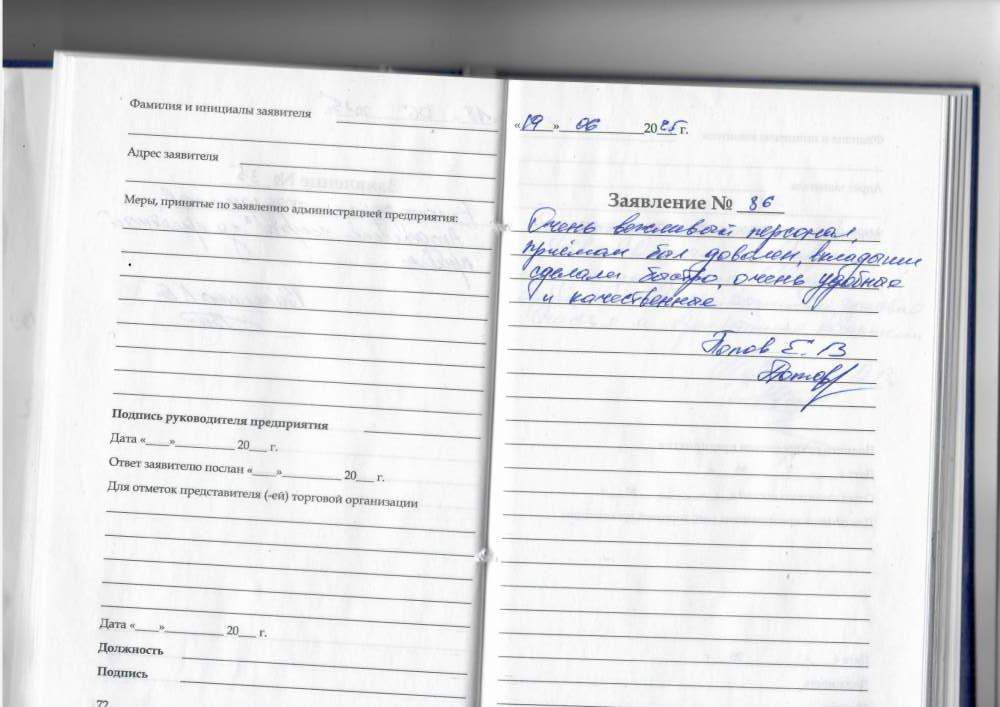 Фамилия и инициалы заявителя
Адрес заявителя
Меры, принятые по заявлению администрацией предприятия:
Подпись руководителя предприятия
Дата «___»__________ 20___ г.
Ответ заявителю послан «____»__________ 20___ г.
Для отметок представителя (-ей) торговой организации
Дата «____»__________ 20___ г.
Должность
Подпись
72
«19» 06 2025 г.
Заявление № 36
Очень вежливый персонал,
приёмом был доволен, вкладыши
сделали быстро, очень удобные
и качественные
Попов Е. В